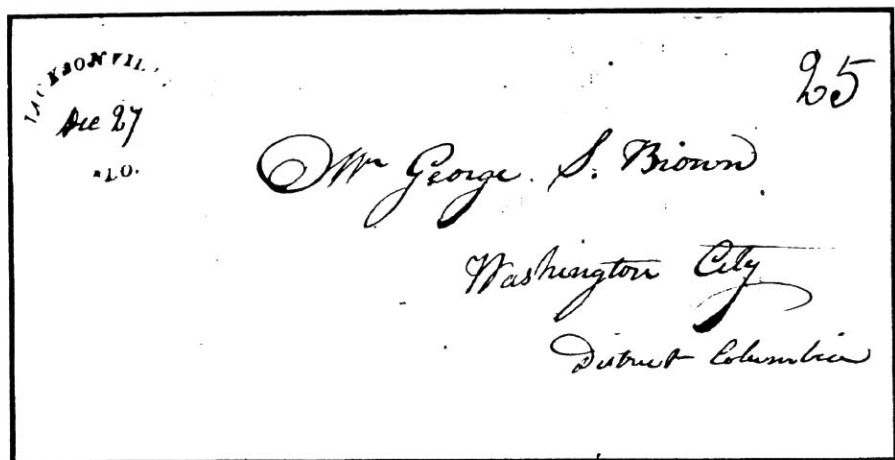 JACKSONVIL
Dec 27
FLO.
25
Mr George. S. Brown
Washington City
District Columbia